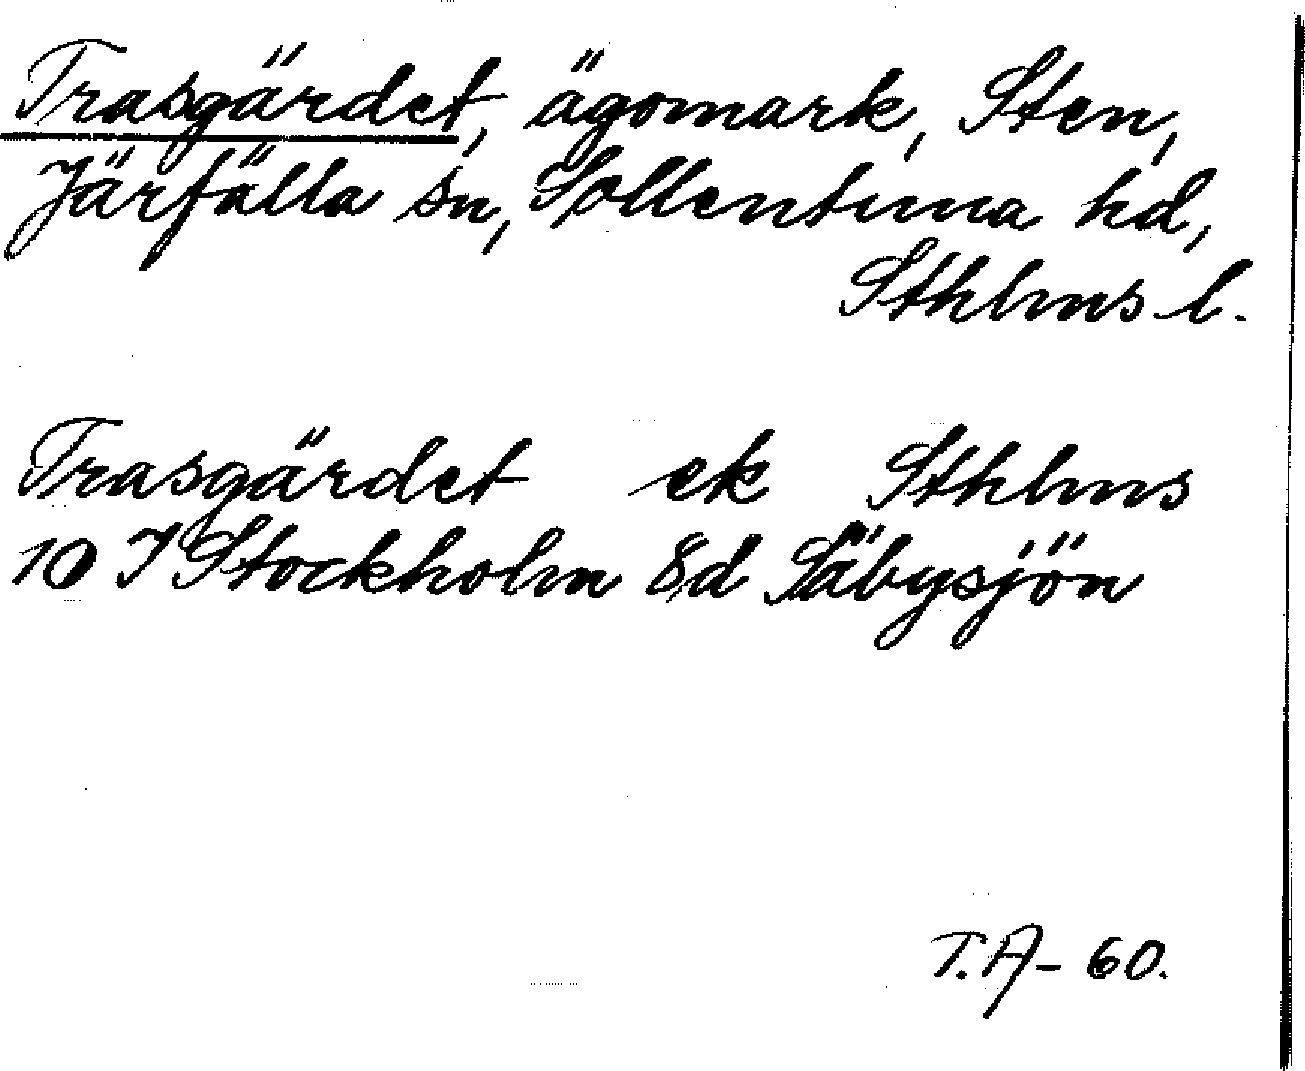 Trasgärdet, ägomark, Sten,
Järfälla sn, Sollentuna hd,
Sthlms l.
Trasgärdet ek Sthlms
10 I Stockholm 8d Säbysjön
T.A-60.